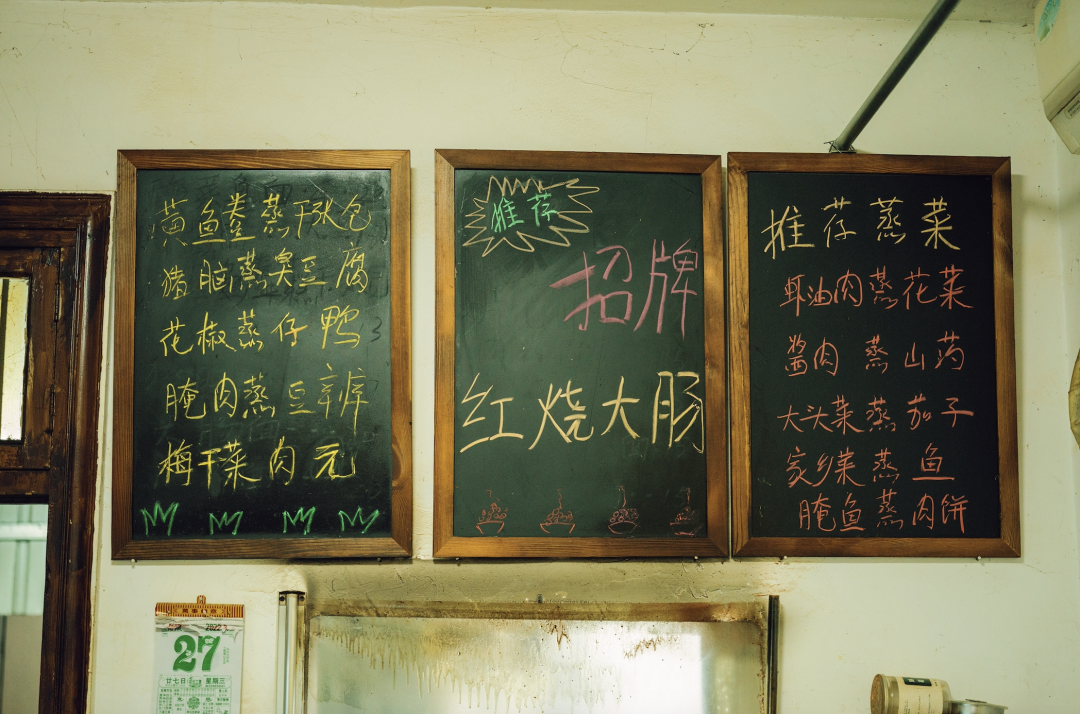 黄鱼鲞蒸干张包
猪脑蒸臭豆腐
花椒蒸仔鸭
腌肉蒸豆瓣
梅干菜肉元
推荐
招牌
红烧大肠
推荐蒸菜
虾油肉蒸花菜
酱肉蒸山药
大头菜蒸茄子
家乡菜蒸鱼
腌鱼蒸肉饼
2022
27
廿七日
星期三